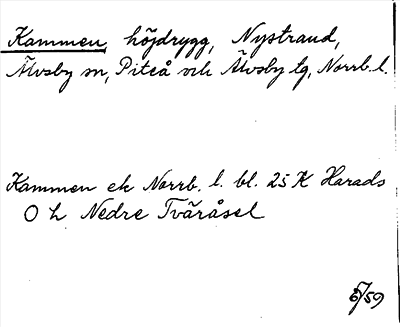 Kammen, höjdrygg, Nystrand,
Älvsby sn, Piteå och Älvsby tg, Norrb. l.
Kammen ek Norrb. l. bl. 25 K Harads
O h Nedre Tvåråsel
/59